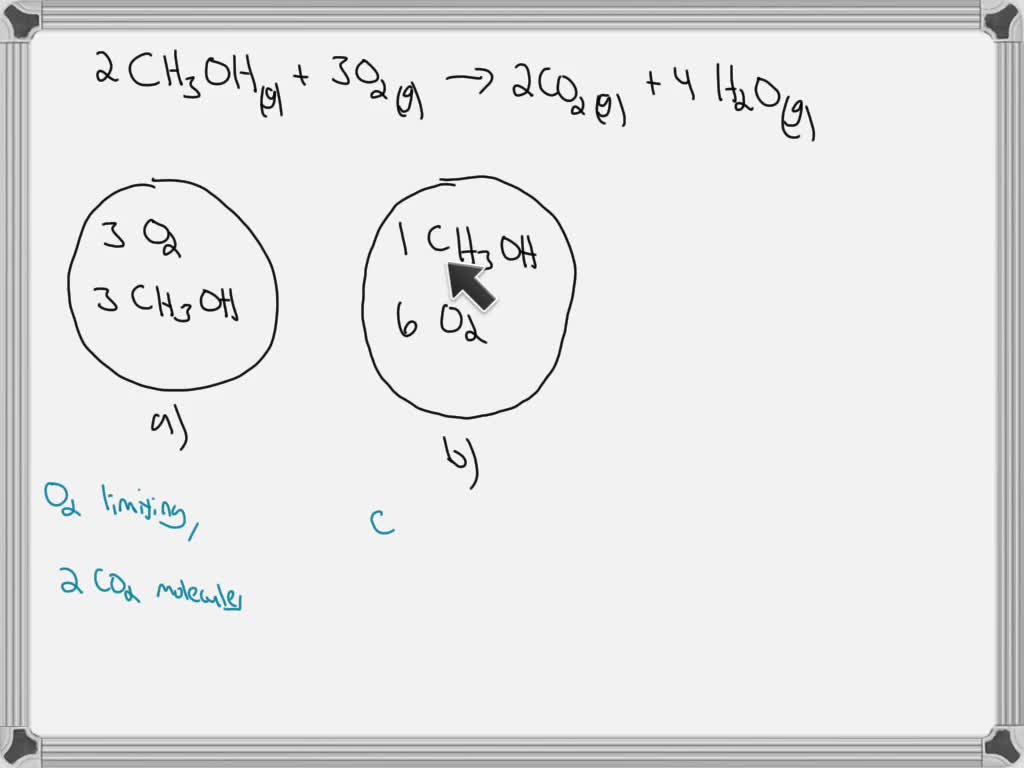 2CH₃OH(g) + 3O₂(g) → 2CO₂(g) + 4H₂O(g)
3 O₂
3 CH₃OH
a)
1 CH₃OH
6 O₂
b)
O₂ limiting,
2 CO₂ molecules
C